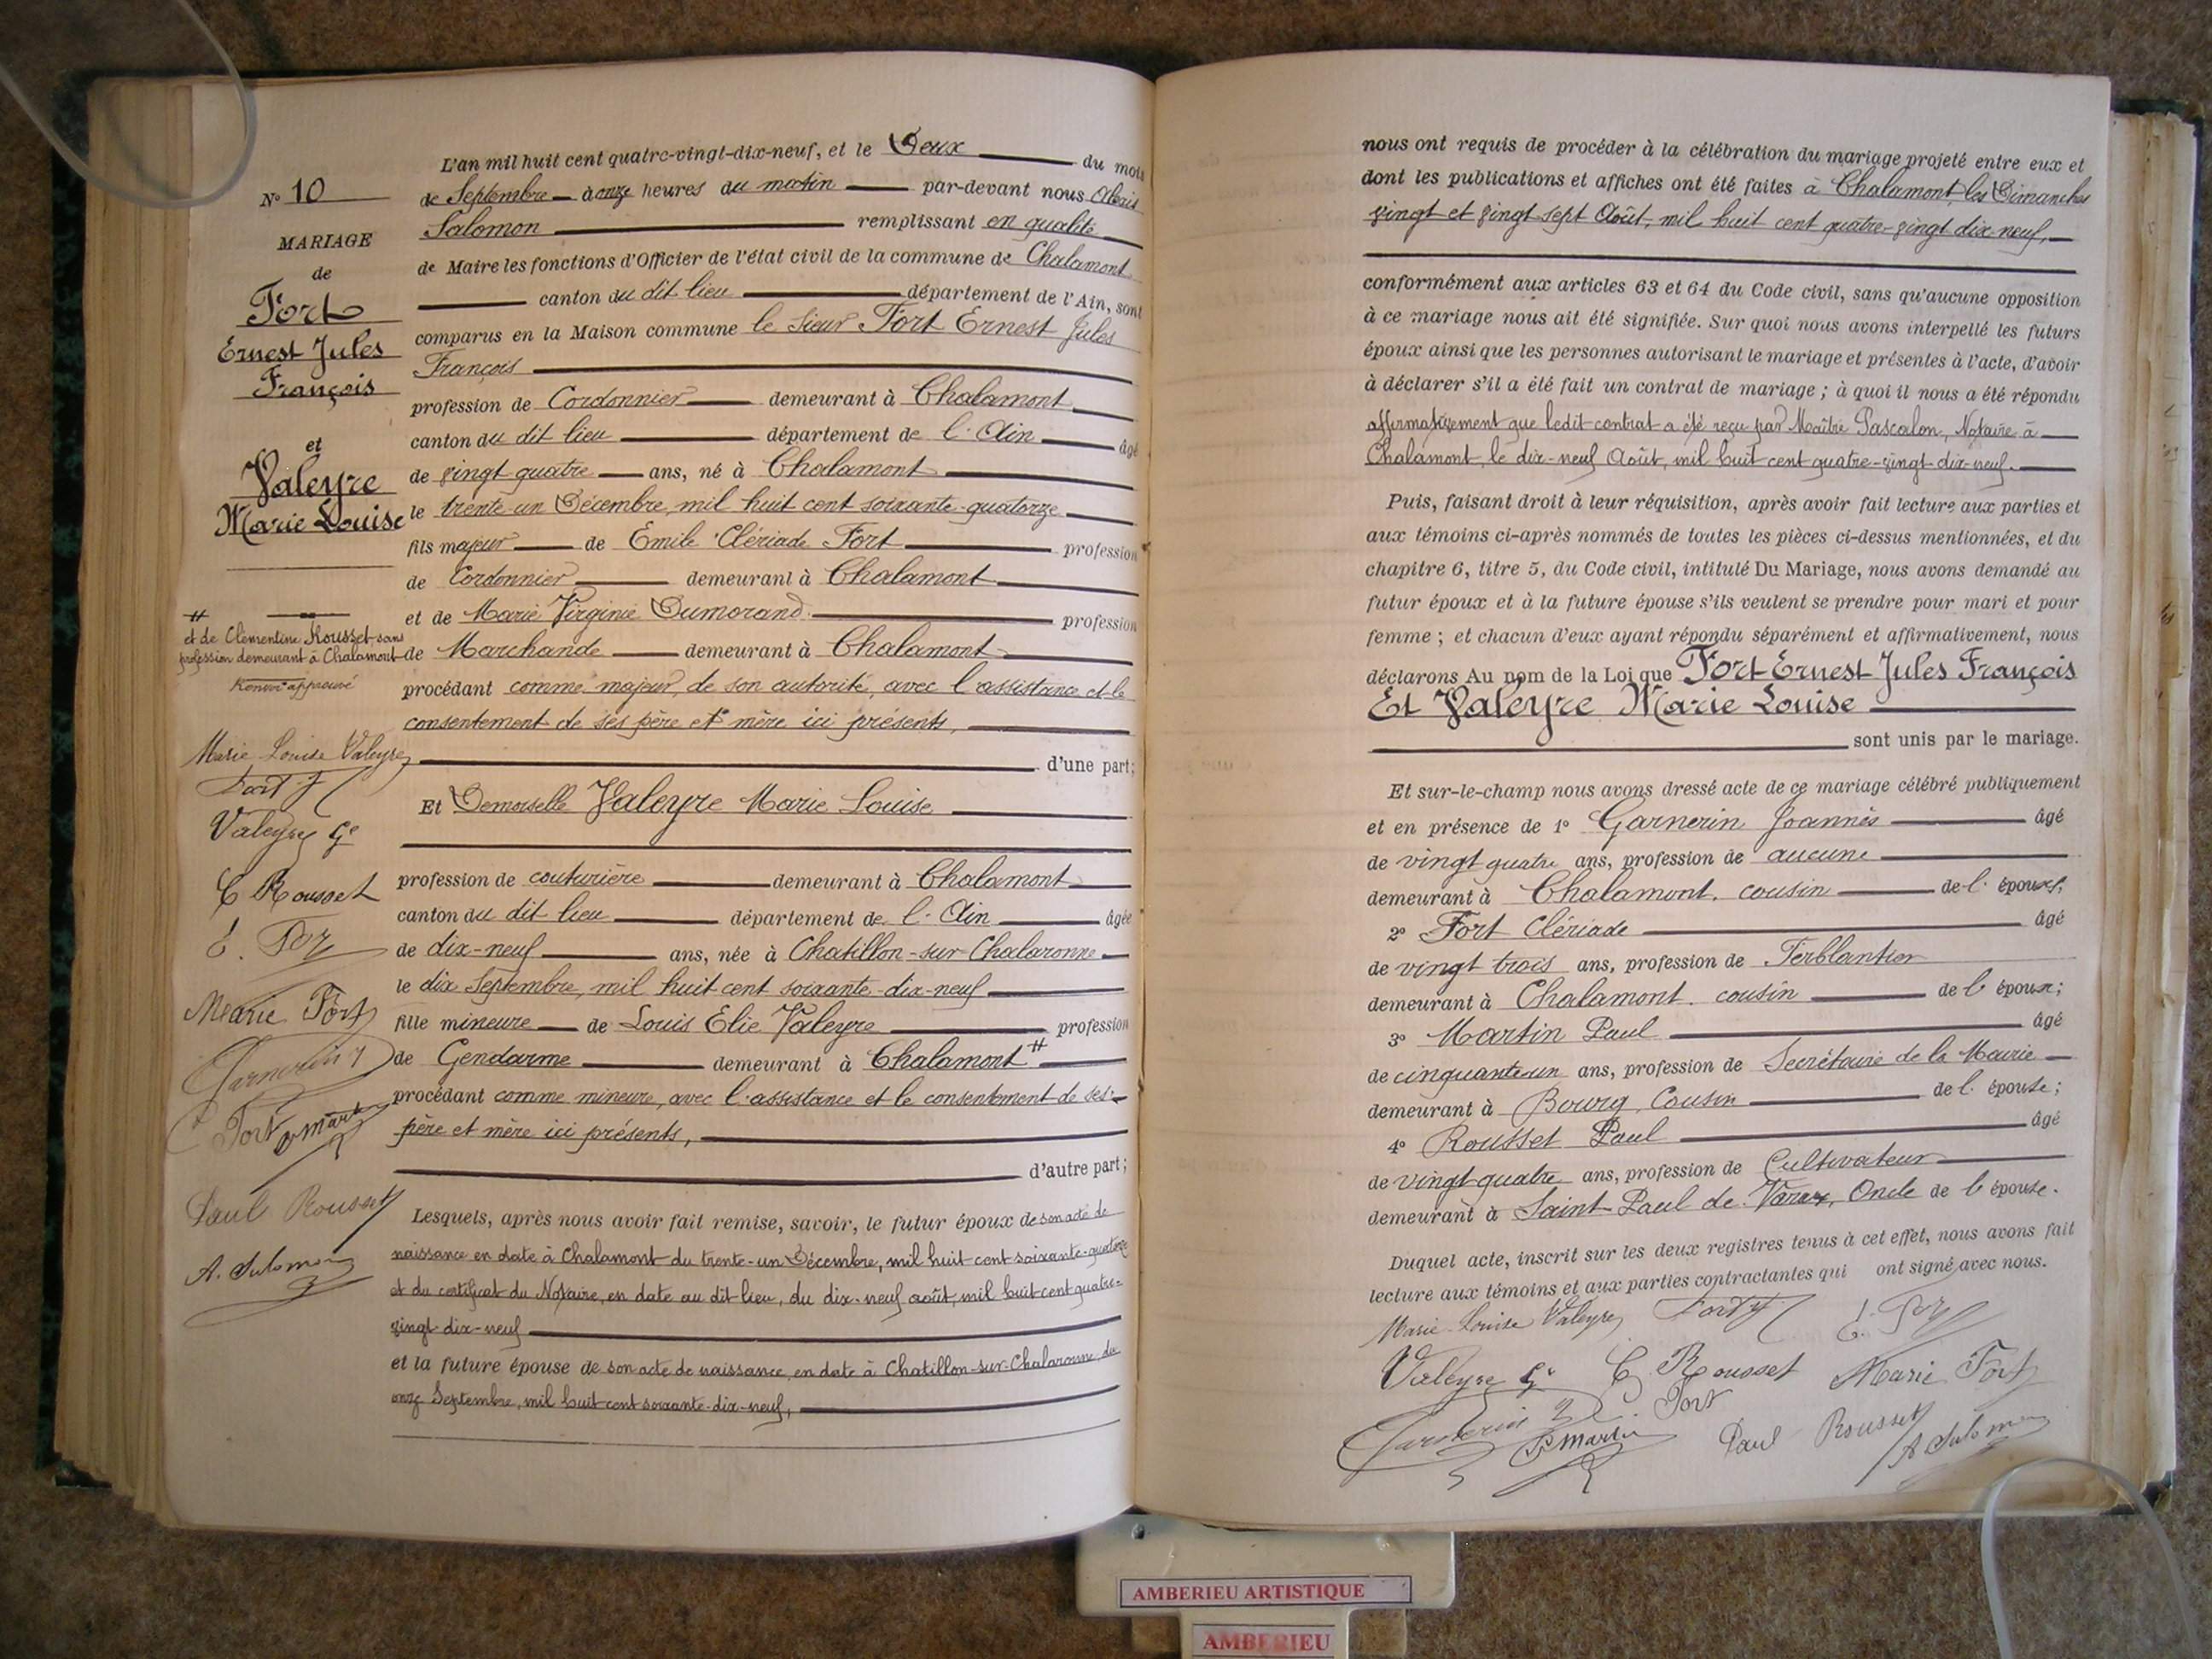 N° 10
MARIAGE
de
Fort
Ernest Jules
François
et
Valeyre
Marie Louise
#
et de Clémentine Rousset sans
profession demeurant à Chalamont
Renvoi approuvé
Marie Louise Valeyre
Fort
Valeyre
C Rousset
E. For
Marie Fort
Garnerin J
Fort
P Martin
Paul Rousset
A. Salomon
L'an mil huit cent quatre-vingt-dix-neuf, et le Deux du mois
de Septembre à onze heures du matin par-devant nous Alexis
Salomon remplissant en qualité
de Maire les fonctions d'Officier de l'état civil de la commune de Chalamont
canton du dit lieu département de l'Ain, sont
comparus en la Maison commune le sieur Fort Ernest Jules
François
profession de Cordonnier demeurant à Chalamont
canton du dit lieu département de l'Ain âgé
de vingt quatre ans, né à Chalamont
le trente-un Décembre, mil huit cent soixante-quatorze
fils majeur de Emile Clériade Fort profession
de Cordonnier demeurant à Chalamont
et de Marie Virginie Dumorand profession
de Marchande demeurant à Chalamont
procédant comme majeur, de son autorité, avec l'assistance et le
consentement de ses père et mère ici présents,
d'une part;
Et Demoiselle Valeyre Marie Louise
profession de couturière demeurant à Chalamont
canton du dit lieu département de l'Ain âgée
de dix-neuf ans, née à Chatillon-sur-Chalaronne
le dix Septembre, mil huit cent soixante-dix-neuf
fille mineure de Louis Elie Valeyre profession
de Gendarme demeurant à Chalamont #
procédant comme mineure, avec l'assistance et le consentement de ses
père et mère ici présents,
d'autre part;
Lesquels, après nous avoir fait remise, savoir, le futur époux de son acte de
naissance en date à Chalamont du trente-un Décembre, mil huit cent soixante-quatorze
et du certificat du Notaire, en date au dit lieu, du dix-neuf août, mil huit cent quatre-
vingt-dix-neuf
et la future épouse de son acte de naissance, en date à Chatillon-sur-Chalaronne, du
onze Septembre, mil huit cent soixante-dix-neuf,
nous ont requis de procéder à la célébration du mariage projeté entre eux et
dont les publications et affiches ont été faites à Chalamont, les Dimanches
vingt et vingt-sept Août, mil huit cent quatre-vingt dix-neuf,
conformément aux articles 63 et 64 du Code civil, sans qu'aucune opposition
à ce mariage nous ait été signifiée. Sur quoi nous avons interpellé les futurs
époux ainsi que les personnes autorisant le mariage et présentes à l'acte, d'avoir
à déclarer s'il a été fait un contrat de mariage ; à quoi il nous a été répondu
affirmativement que ledit contrat a été reçu par Maître Pascalon, Notaire à
Chalamont, le dix-neuf Août, mil huit cent quatre-vingt-dix-neuf.
Puis, faisant droit à leur réquisition, après avoir fait lecture aux parties et
aux témoins ci-après nommés de toutes les pièces ci-dessus mentionnées, et du
chapitre 6, titre 5, du Code civil, intitulé Du Mariage, nous avons demandé au
futur époux et à la future épouse s'ils veulent se prendre pour mari et pour
femme ; et chacun d'eux ayant répondu séparément et affirmativement, nous
déclarons Au nom de la Loi que Fort Ernest Jules François
Et Valeyre Marie Louise
sont unis par le mariage.
Et sur-le-champ nous avons dressé acte de ce mariage célébré publiquement
et en présence de 1° Garnerin Joannès âgé
de vingt quatre ans, profession de aucune
demeurant à Chalamont, cousin de l'époux;
2° Fort Clériade âgé
de vingt trois ans, profession de Ferblantier
demeurant à Chalamont. cousin de l'époux;
3° Martin Paul âgé
de cinquante-un ans, profession de Secrétaire de la Mairie
demeurant à Bourg, Cousin de l'épouse;
4° Rousset Paul âgé
de vingt-quatre ans, profession de Cultivateur
demeurant à Saint Paul de Varax, Oncle de l'épouse.
Duquel acte, inscrit sur les deux registres tenus à cet effet, nous avons fait
lecture aux témoins et aux parties contractantes qui ont signé avec nous.
Marie Louise Valeyre Fort E. For
Valeyre C Rousset Marie Fort
Garnerin J Fort
P Martin Paul Rousset A Salomon
AMBERIEU ARTISTIQUE
AMBERIEU